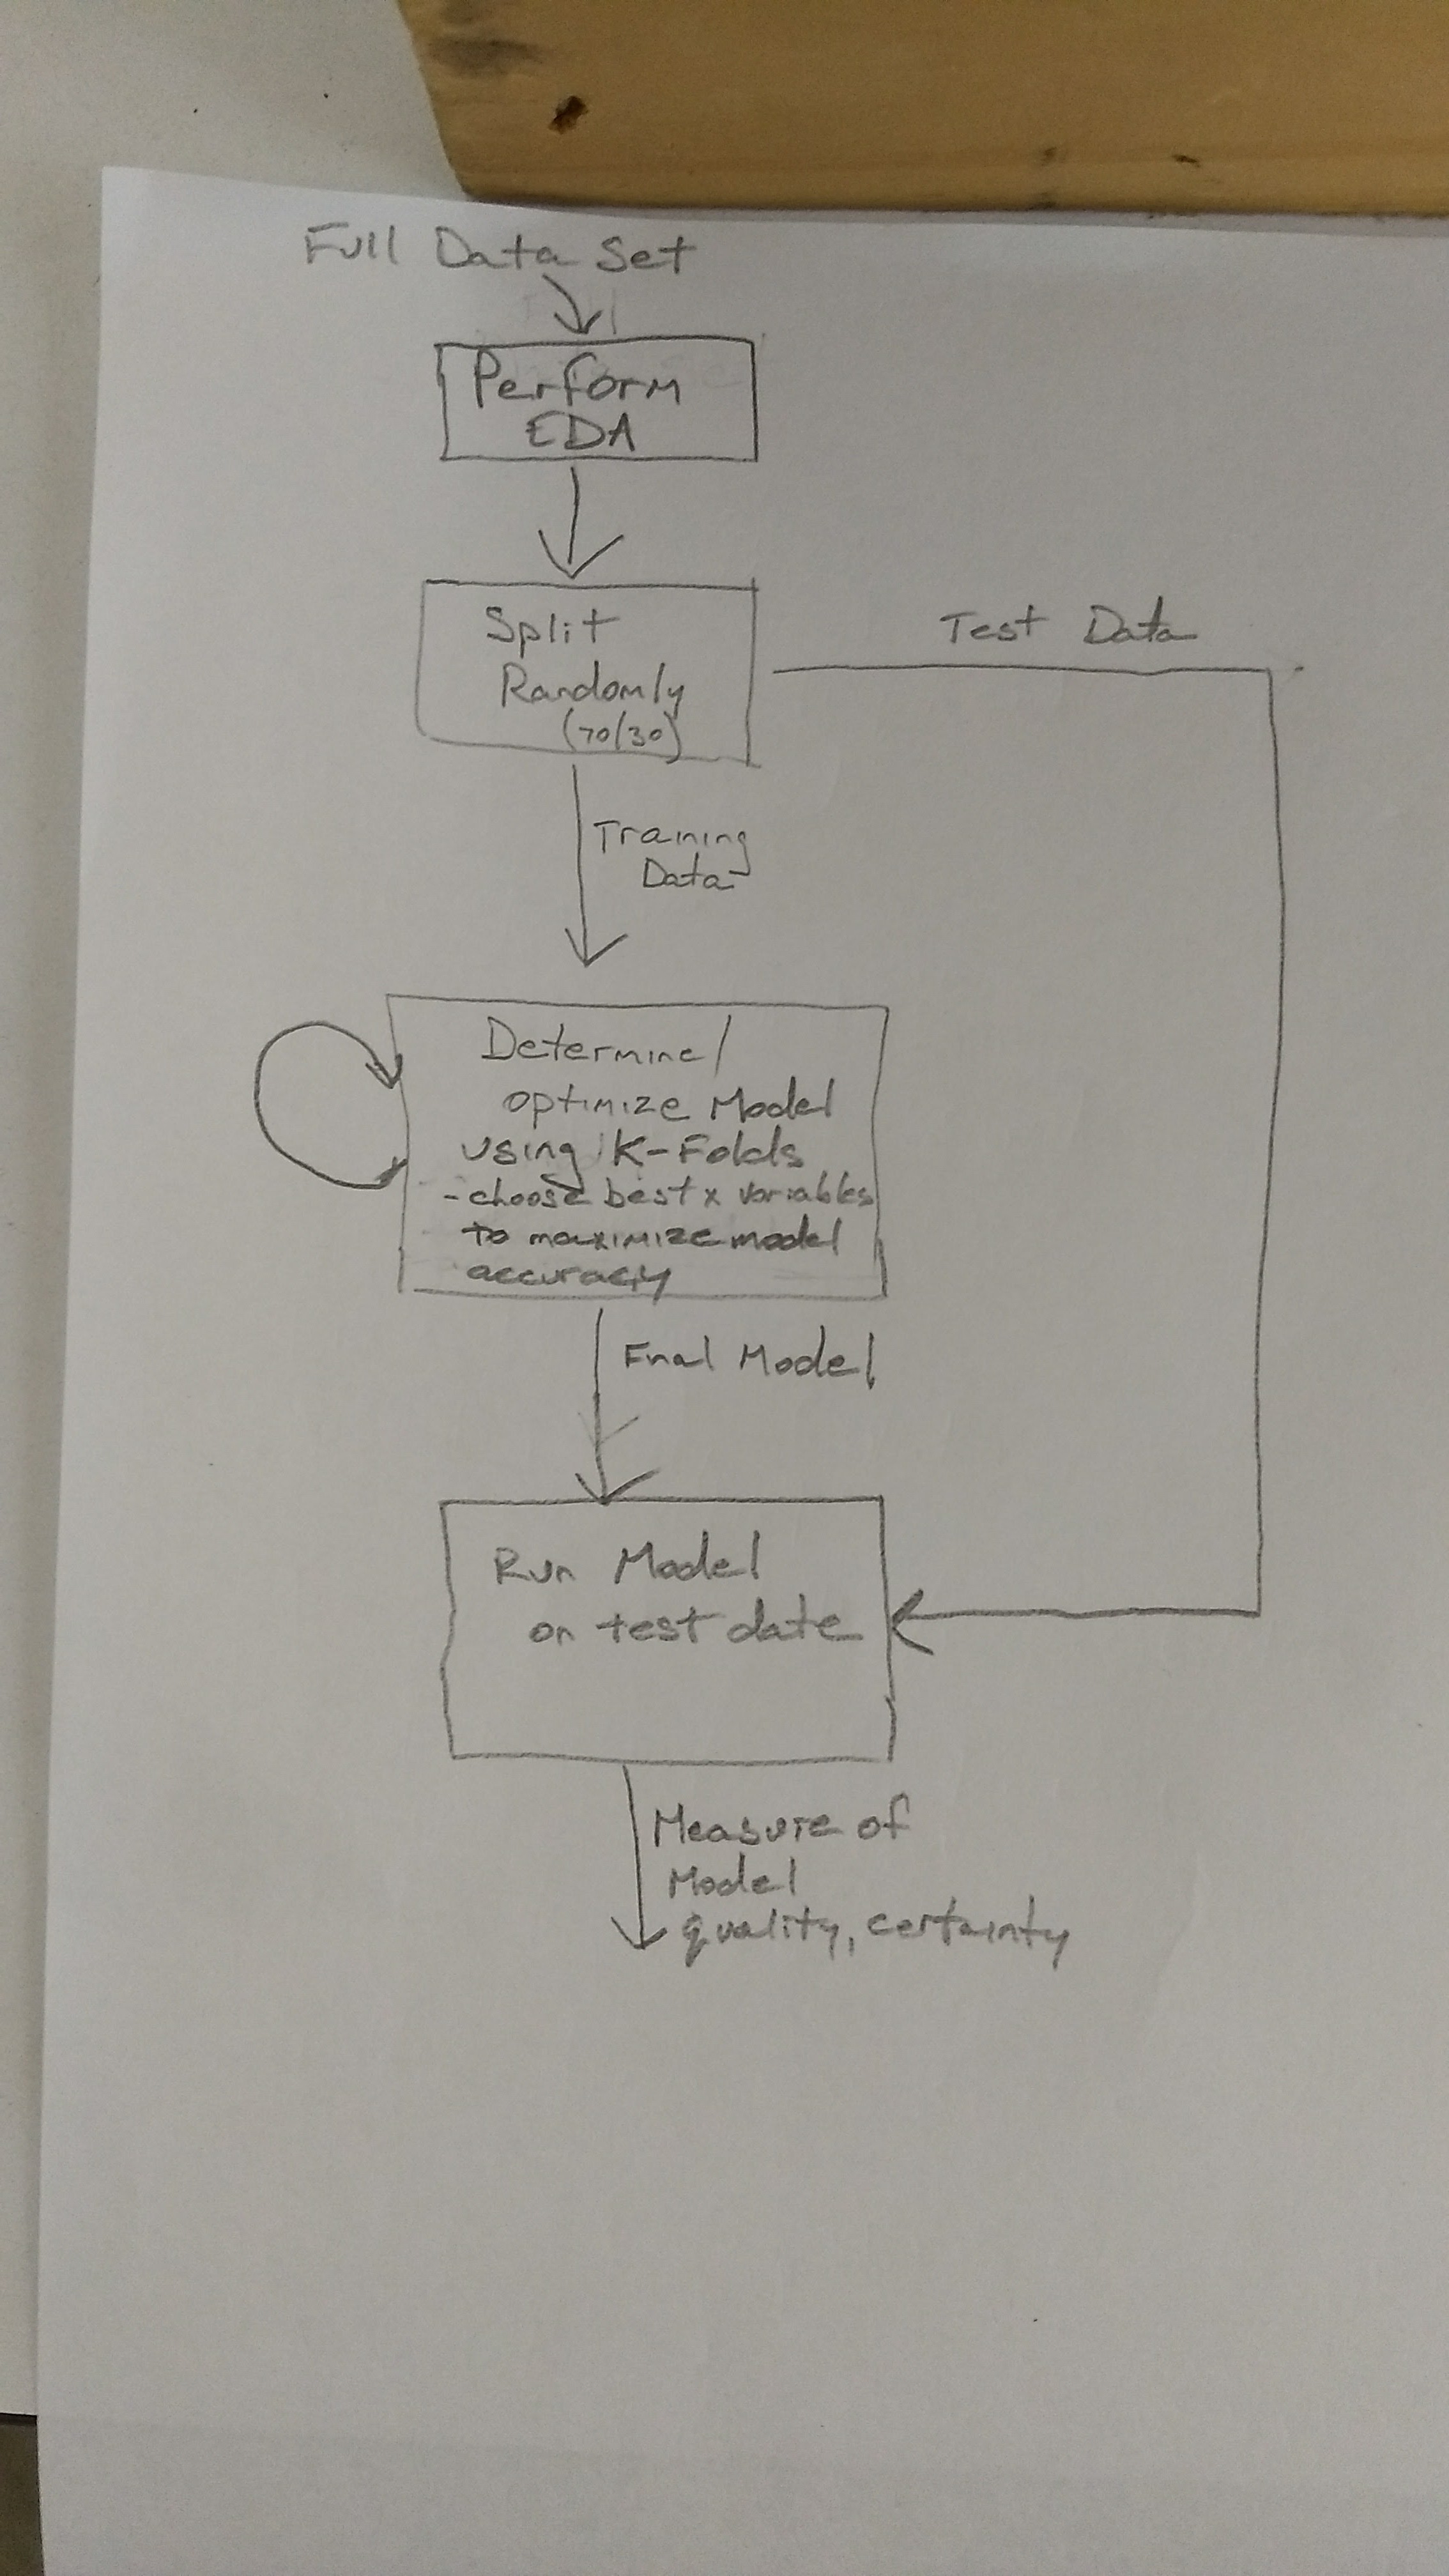 Full Data Set
Perform
EDA
Split
Randomly
(70/30)
Test Data
Training
Data
Determine/
optimize Model
using K-Folds
- choose best x variables
to maximize model
accuracy
Final Model
Run Model
on test date
Measure of
Model
quality, certainty